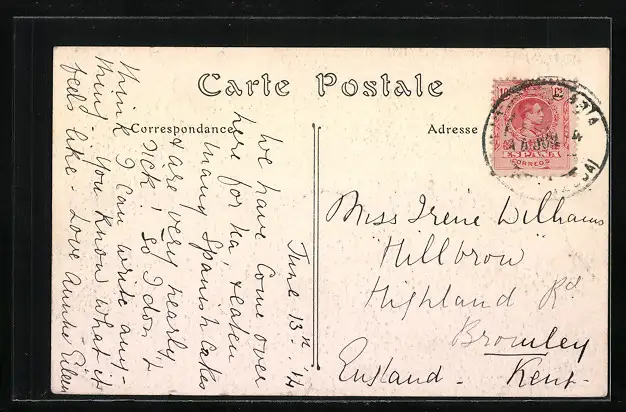 Carte Postale
Correspondance
Adresse
June 13th. 14
We have come over
here for tea, & eaten
many Spanish cakes
& are very nearly
sick! So I don't
think I can write any-
thing. You know what it
feels like - Love Auntie Eileen
10 Cs
ESPAÑA
CORREOS
Miss Irene Williams
Hillbrow
Highland Rd
Bromley
England - Kent -